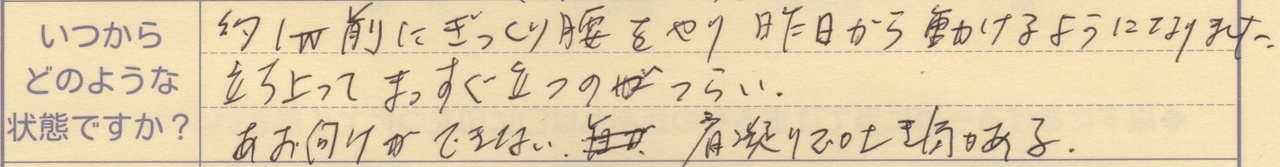 いつから
どのような
状態ですか?
約1w前にぎっくり腰をやり 昨日から動けるようになりました。
立ち上ってまっすぐ立つのがつらい.
あお向けができない. 肩凝りで吐き気がある.